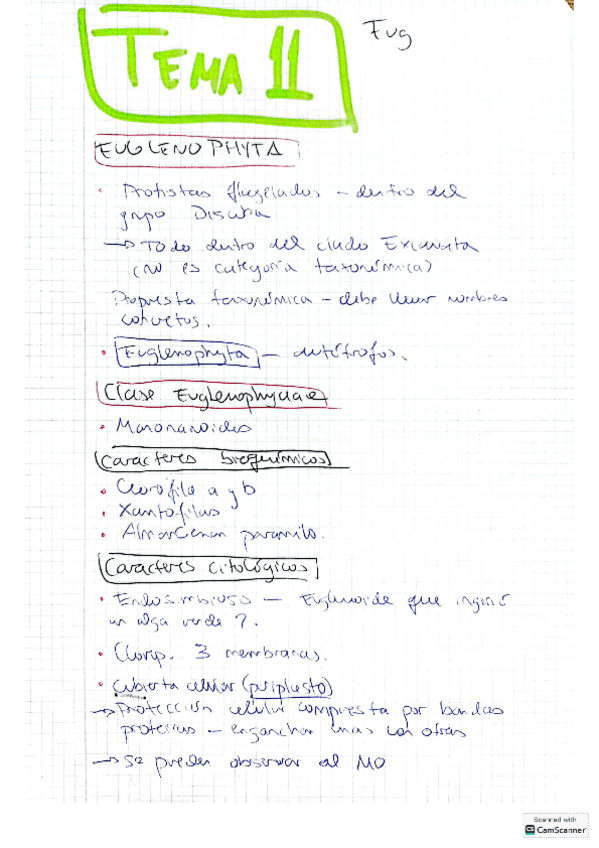 TEMA 11
Eug
EUGLENOPHYTA
• Protistas flagelados – dentro del
grupo Discoba
→ Todo dentro del clado Excavata
(no es categoría taxonómica)
Propuesta taxonómica – debe llevar nombres
correctos.
• Euglenophyta – autótrofos.
Clase Euglenophyceae
• Monadoides
Caracteres bioquímicos
• Clorofila a y b
• Xantofilas
• Almacenan paramilo.
Caracteres citológicos
• Endosimbiosis – Euglenoide que ingirió
un alga verde ?.
• Clorop. 3 membranas.
• Cubierta celular (periplasto)
→ Protección celular compuesta por bandas
proteicas – enganchan unas con otras
→ Se pueden observar al MO
Scanned with
CamScanner